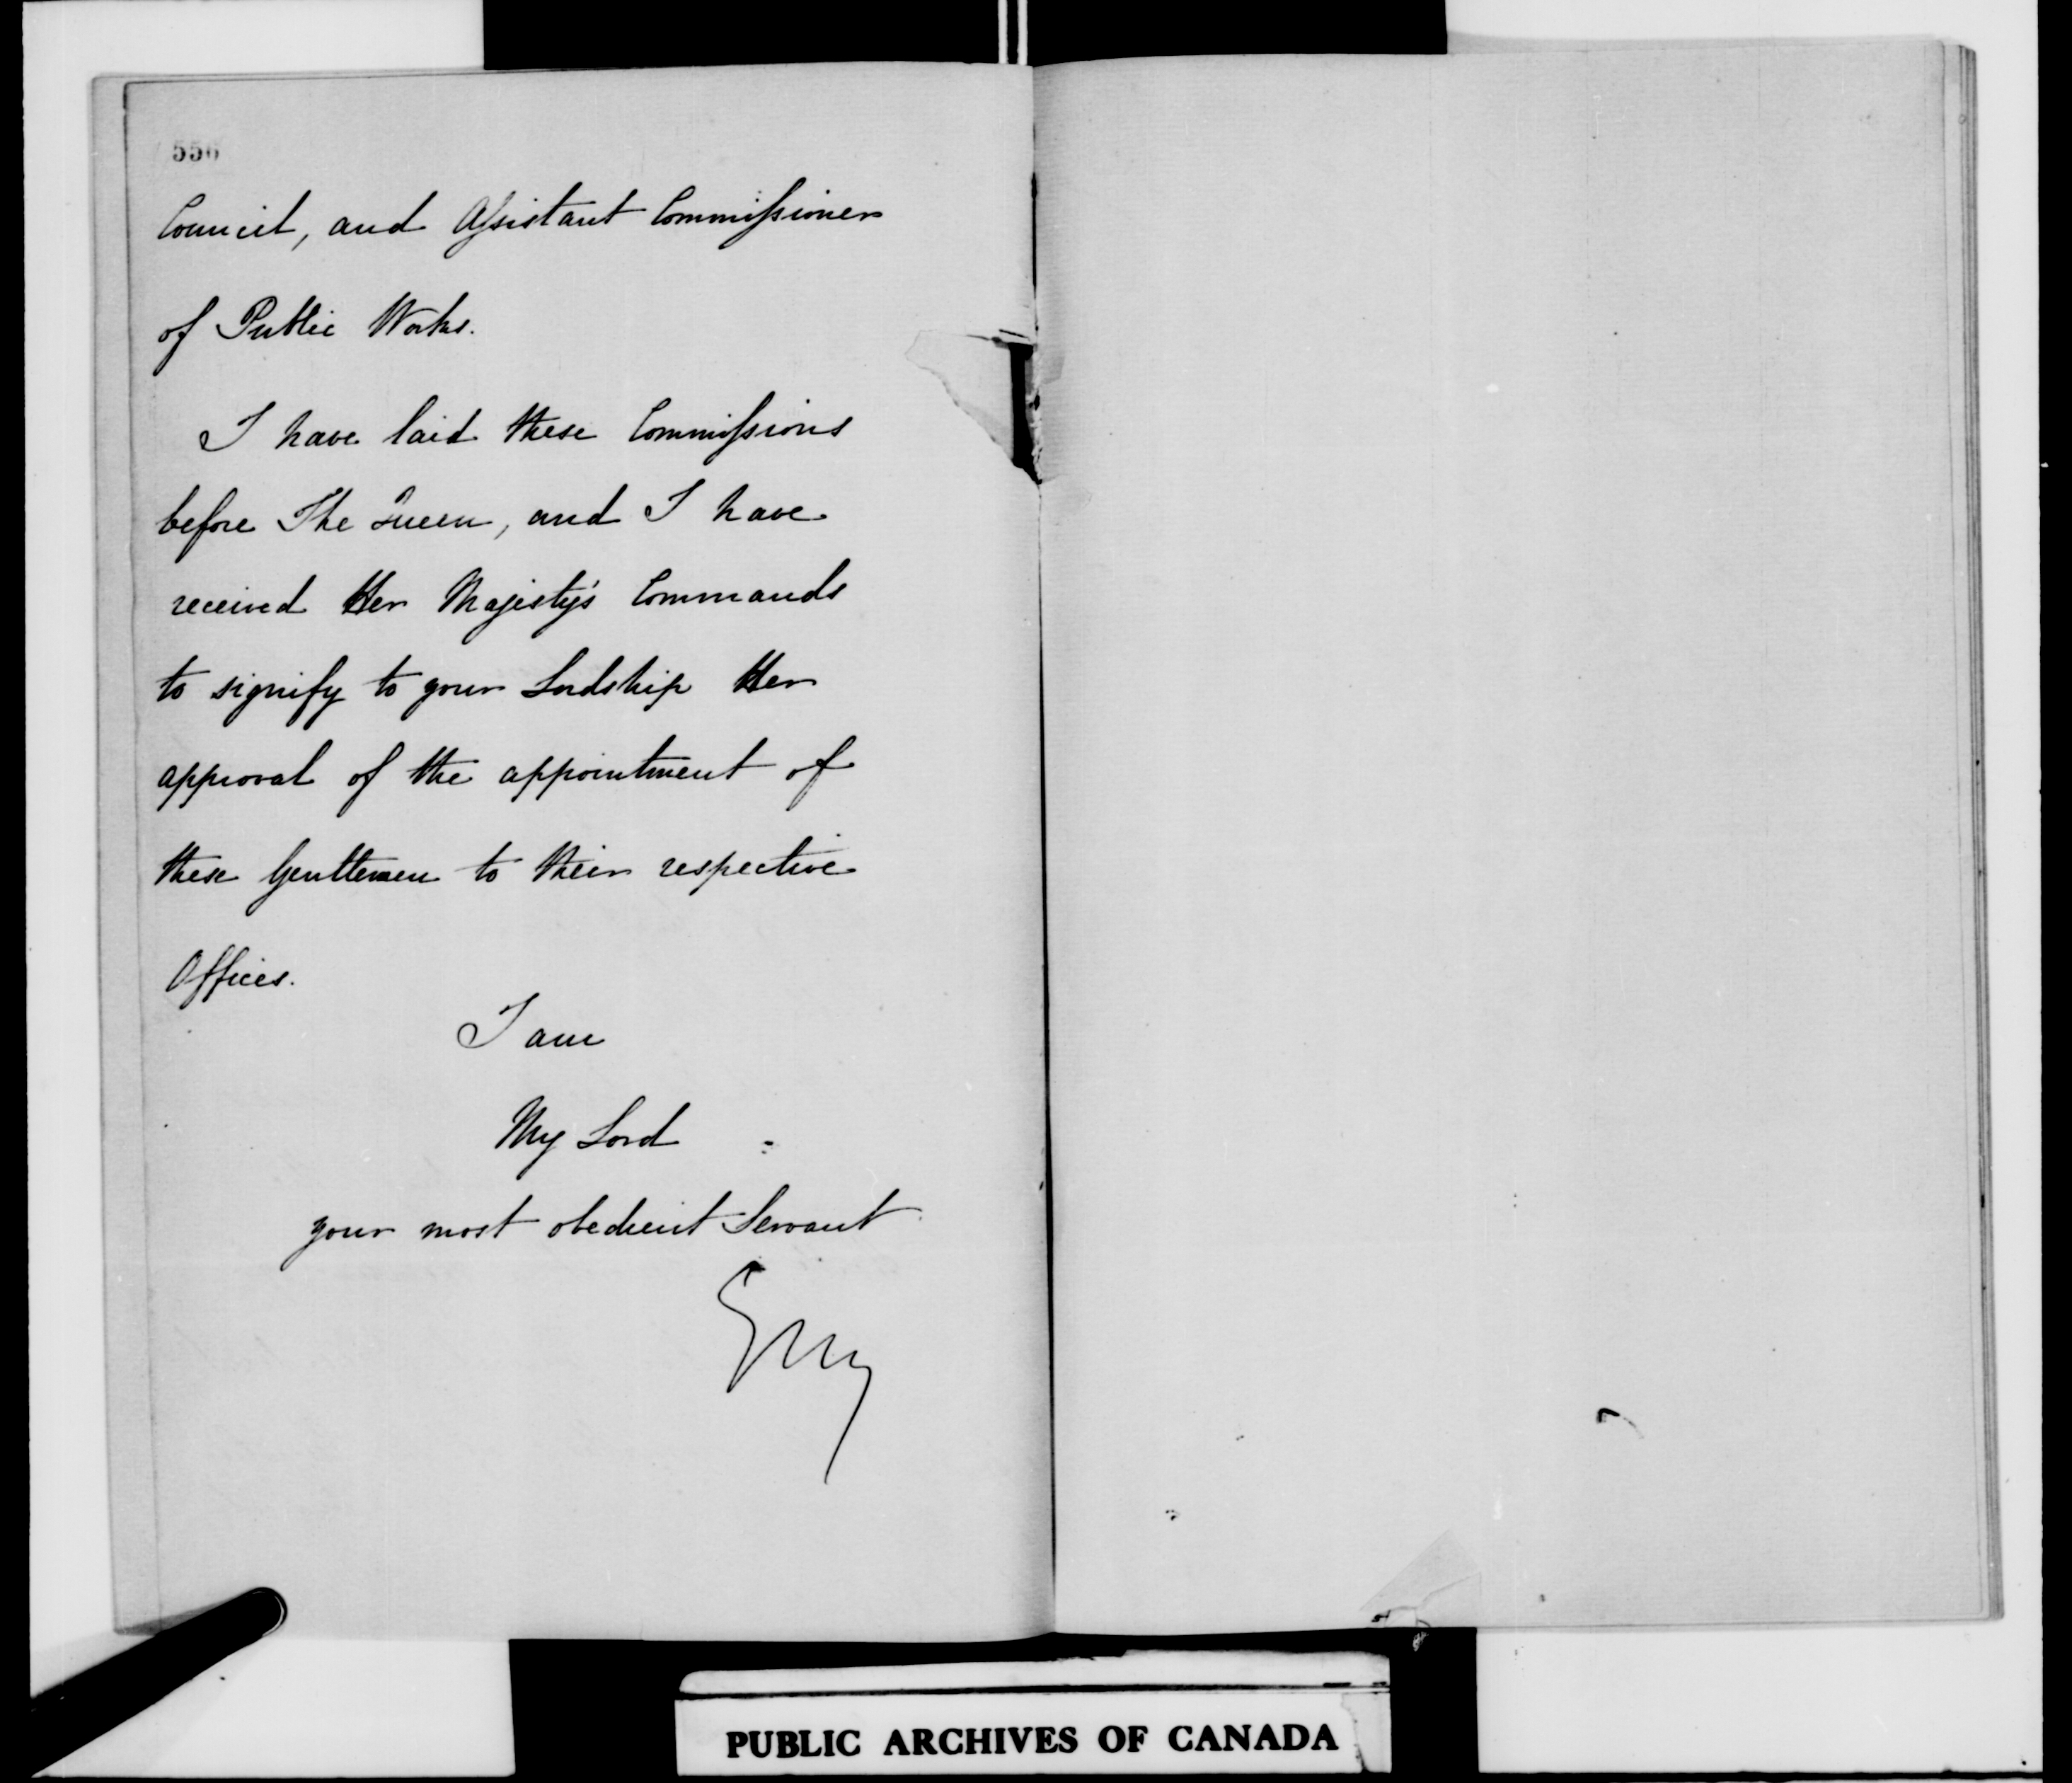 556
Council, and Assistant Commissioner
of Public Works.
I have laid these Commissions
before The Queen, and I have
received Her Majesty's Commands
to signify to your Lordship Her
approval of the appointment of
these Gentlemen to their respective
Offices.
I am
My Lord
your most obedient Servant
Grey
PUBLIC ARCHIVES OF CANADA